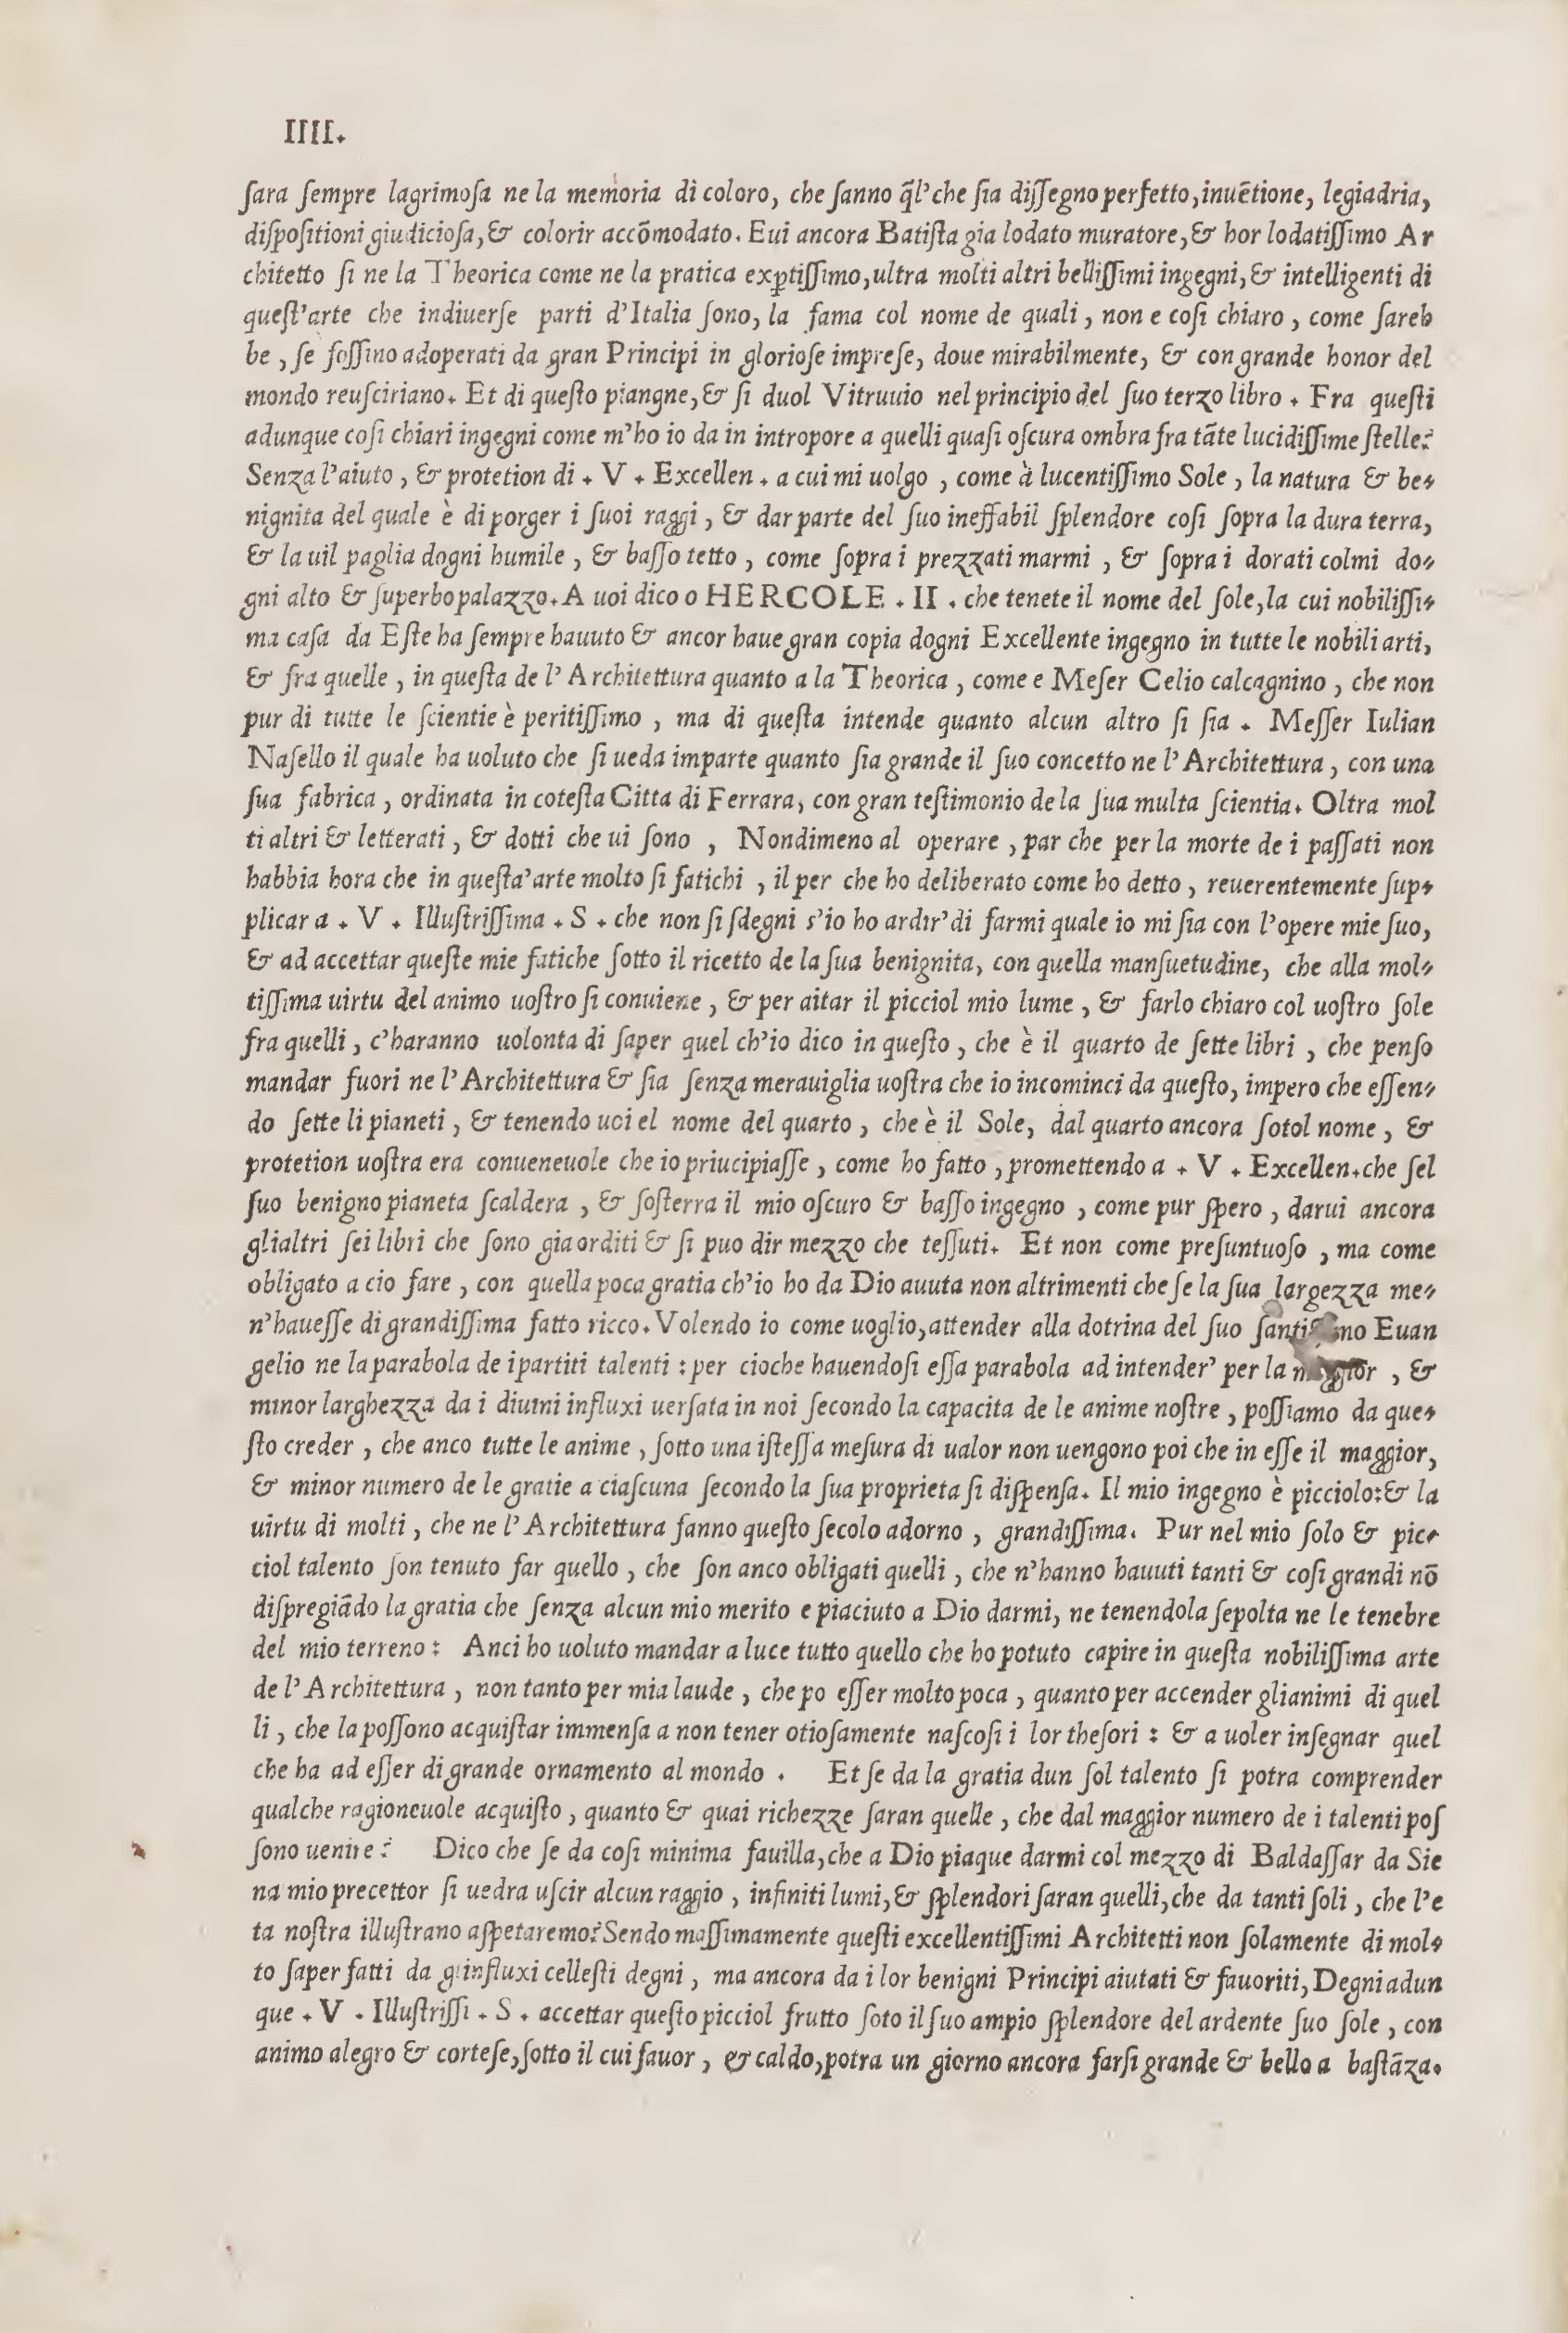 IIII.
ſara ſempre lagrimoſa ne la memoria di coloro, che ſanno q̃l'che ſia diſſegno perfetto, inuẽtione, legiadria,
diſpoſitioni giudicioſa, & colorir accõmodato. Eui ancora Batiſta gia lodato muratore, & hor lodatiſſimo Ar
chitetto ſi ne la Theorica come ne la pratica exꝑtiſſimo, ultra molti altri belliſſimi ingegni, & intelligenti di
queſt'arte che indiuerſe parti d'Italia ſono, la fama col nome de quali, non e coſi chiaro, come ſareb
be, ſe foſſino adoperati da gran Principi in glorioſe impreſe, doue mirabilmente, & con grande honor del
mondo reuſciriano. Et di queſto piangne, & ſi duol Vitruuio nel principio del ſuo terzo libro. Fra queſti
adunque coſi chiari ingegni come m'ho io da in intropore a quelli quaſi oſcura ombra fra tãte lucidiſſime ſtelle?
Senza l'aiuto, & protetion di . V . Excellen. a cui mi uolgo, come à lucentiſſimo Sole, la natura & be-
nignita del quale è di porger i ſuoi raggi, & dar parte del ſuo ineffabil ſplendore coſi ſopra la dura terra,
& la uil paglia dogni humile, & baſſo tetto, come ſopra i prezzati marmi, & ſopra i dorati colmi do-
gni alto & ſuperbo palazzo. A uoi dico o HERCOLE . II . che tenete il nome del ſole, la cui nobiliſſi-
ma caſa da Eſte ha ſempre hauuto & ancor haue gran copia dogni Excellente ingegno in tutte le nobili arti,
& fra quelle, in queſta de l'Architettura quanto a la Theorica, come e Meſer Celio calcagnino, che non
pur di tutte le ſcientie è peritiſſimo, ma di queſta intende quanto alcun altro ſi ſia. Meſſer Iulian
Naſello il quale ha uoluto che ſi ueda imparte quanto ſia grande il ſuo concetto ne l'Architettura, con una
ſua fabrica, ordinata in coteſta Citta di Ferrara, con gran teſtimonio de la ſua multa ſcientia. Oltra mol
ti altri & letterati, & dotti che ui ſono, Nondimeno al operare, par che per la morte de i paſſati non
habbia hora che in queſta'arte molto ſi fatichi, il per che ho deliberato come ho detto, reuerentemente ſup-
plicar a . V . Illuſtriſſima . S . che non ſi ſdegni s'io ho ardir' di farmi quale io mi ſia con l'opere mie ſuo,
& ad accettar queſte mie fatiche ſotto il ricetto de la ſua benignita, con quella manſuetudine, che alla mol-
tiſſima uirtu del animo uoſtro ſi conuiene, & per aitar il picciol mio lume, & farlo chiaro col uoſtro ſole
fra quelli, c'haranno uolonta di ſaper quel ch'io dico in queſto, che è il quarto de ſette libri, che penſo
mandar fuori ne l'Architettura & ſia ſenza merauiglia uoſtra che io incominci da queſto, impero che eſſen-
do ſette li pianeti, & tenendo uoi el nome del quarto, che è il Sole, dal quarto ancora ſotol nome, &
protetion uoſtra era conueneuole che io priucipiaſſe, come ho fatto, promettendo a . V . Excellen. che ſel
ſuo benigno pianeta ſcaldera, & ſoſterra il mio oſcuro & baſſo ingegno, come pur ſpero, darui ancora
glialtri ſei libri che ſono gia orditi & ſi puo dir mezzo che teſſuti. Et non come preſuntuoſo, ma come
obligato a cio fare, con quella poca gratia ch'io ho da Dio auuta non altrimenti che ſe la ſua largezza me-
n'haueſſe di grandiſſima fatto ricco. Volendo io come uoglio, attender alla dotrina del ſuo Euan
gelio ne la parabola de i partiti talenti : per cioche hauendoſi eſſa parabola ad intender' per la maggior, &
minor larghezza da i diuini influxi uerſata in noi ſecondo la capacita de le anime noſtre, poſſiamo da que-
ſto creder, che anco tutte le anime, ſotto una iſteſſa meſura di ualor non uengono poi che in eſſe il maggior,
& minor numero de le gratie a ciaſcuna ſecondo la ſua proprieta ſi diſpenſa. Il mio ingegno è picciolo: & la
uirtu di molti, che ne l'Architettura fanno queſto ſecolo adorno, grandiſſima. Pur nel mio ſolo & pic-
ciol talento ſon tenuto far quello, che ſon anco obligati quelli, che n'hanno hauuti tanti & coſi grandi nõ
diſpregiãdo la gratia che ſenza alcun mio merito e piaciuto a Dio darmi, ne tenendola ſepolta ne le tenebre
del mio terreno : Anci ho uoluto mandar a luce tutto quello che ho potuto capire in queſta nobiliſſima arte
de l'Architettura, non tanto per mia laude, che po eſſer molto poca, quanto per accender glianimi di quel
li, che la poſſono acquiſtar immenſa a non tener otioſamente naſcoſi i lor theſori : & a uoler inſegnar quel
che ha ad eſſer di grande ornamento al mondo. Et ſe da la gratia dun ſol talento ſi potra comprender
qualche ragioneuole acquiſto, quanto & quai richezze ſaran quelle, che dal maggior numero de i talenti poſ
ſono uenire? Dico che ſe da coſi minima fauilla, che a Dio piaque darmi col mezzo di Baldaſſar da Sie
na mio precettor ſi uedra uſcir alcun raggio, infiniti lumi, & ſplendori ſaran quelli, che da tanti ſoli, che l'e
ta noſtra illuſtrano aſpetaremo? Sendo maſſimamente queſti excellentiſſimi Architetti non ſolamente di mol-
to ſaper fatti da gl'influxi celleſti degni, ma ancora da i lor benigni Principi aiutati & fauoriti, Degni adun
que . V . Illuſtriſſi . S . accettar queſto picciol frutto ſoto il ſuo ampio ſplendore del ardente ſuo ſole, con
animo alegro & corteſe, ſotto il cui fauor, & caldo, potra un giorno ancora farſi grande & bello a baſtãza.